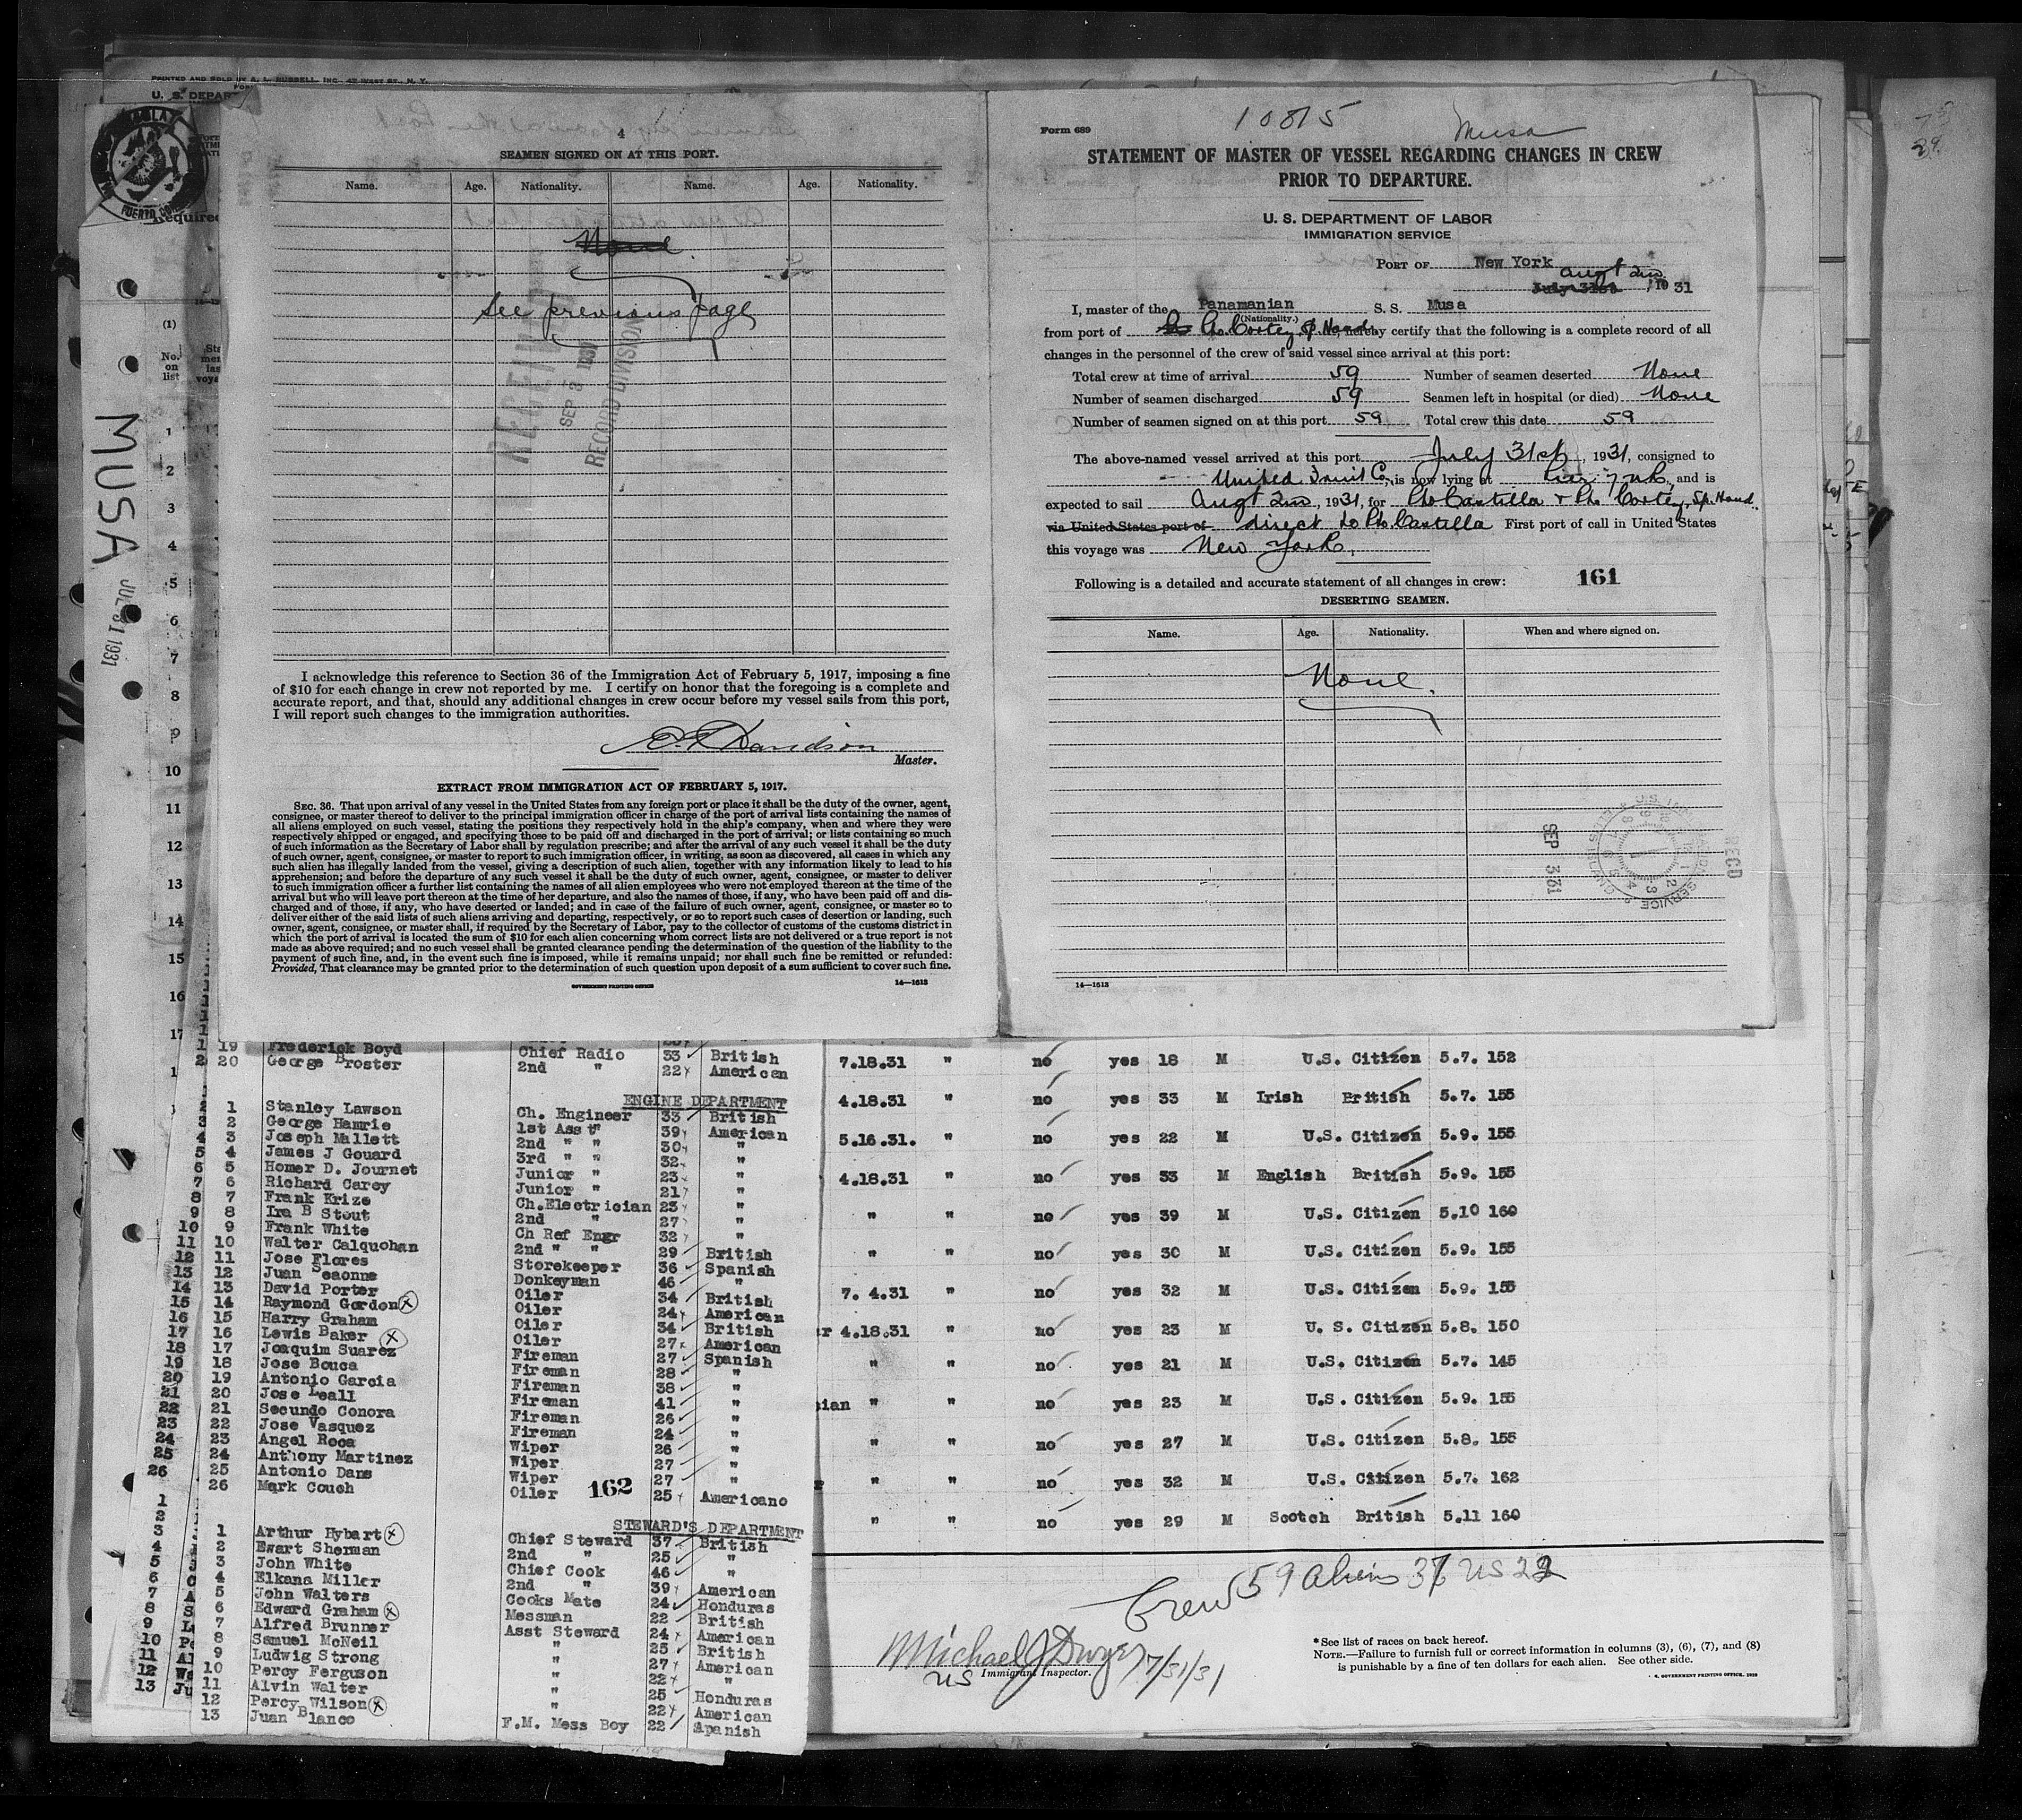 PRINTED AND SOLD BY A. L. RUSSELL, INC., 47 WEST ST., N. Y.
U. S. DEPAR
PUERTO COR
Required
(1)
No. on list
MUSA
JUL 31 1931
1
2
3
4
5
6
7
8
9
10
11
12
13
14
15
16
17
4
SEAMEN SIGNED ON AT THIS PORT.
Name. Age. Nationality. Name. Age. Nationality.
None
See previous page
RECEIVED
SEP 3 1931
RECORD DIVISION
I acknowledge this reference to Section 36 of the Immigration Act of February 5, 1917, imposing a fine
of $10 for each change in crew not reported by me. I certify on honor that the foregoing is a complete and
accurate report, and that, should any additional changes in crew occur before my vessel sails from this port,
I will report such changes to the immigration authorities.
Davidson
Master.
EXTRACT FROM IMMIGRATION ACT OF FEBRUARY 5, 1917.
SEC. 36. That upon arrival of any vessel in the United States from any foreign port or place it shall be the duty of the owner, agent,
consignee, or master thereof to deliver to the principal immigration officer in charge of the port of arrival lists containing the names of
all aliens employed on such vessel, stating the positions they respectively hold in the ship's company, when and where they were
respectively shipped or engaged, and specifying those to be paid off and discharged in the port of arrival; or lists containing so much
of such information as the Secretary of Labor shall by regulation prescribe; and after the arrival of any such vessel it shall be the duty
of such owner, agent, consignee, or master to report to such immigration officer, in writing, as soon as discovered, all cases in which any
such alien has illegally landed from the vessel, giving a description of such alien, together with any information likely to lead to his
apprehension; and before the departure of any such vessel it shall be the duty of such owner, agent, consignee, or master to deliver
to such immigration officer a further list containing the names of all alien employees who were not employed thereon at the time of the
arrival but who will leave port thereon at the time of her departure, and also the names of those, if any, who have been paid off and dis-
charged and of those, if any, who have deserted or landed; and in case of the failure of such owner, agent, consignee, or master so to
deliver either of the said lists of such aliens arriving and departing, respectively, or so to report such cases of desertion or landing, such
owner, agent, consignee, or master shall, if required by the Secretary of Labor, pay to the collector of customs of the customs district in
which the port of arrival is located the sum of $10 for each alien concerning whom correct lists are not delivered or a true report is not
made as above required; and no such vessel shall be granted clearance pending the determination of the question of the liability to the
payment of such fine, and, in the event such fine is imposed, while it remains unpaid; nor shall such fine be remitted or refunded:
Provided, That clearance may be granted prior to the determination of such question upon deposit of a sum sufficient to cover such fine.
GOVERNMENT PRINTING OFFICE 14—1613
10815 Musa
Form 689
STATEMENT OF MASTER OF VESSEL REGARDING CHANGES IN CREW
PRIOR TO DEPARTURE.
U. S. DEPARTMENT OF LABOR
IMMIGRATION SERVICE
PORT OF New York
July 31st Augt 2nd, 1931
I, master of the Panamanian S. S. Musa
(Nationality.)
from port of Pto Cortez, Sp. Hond, hereby certify that the following is a complete record of all
changes in the personnel of the crew of said vessel since arrival at this port:
Total crew at time of arrival 59 Number of seamen deserted None
Number of seamen discharged 59 Seamen left in hospital (or died) None
Number of seamen signed on at this port 59 Total crew this date 59
The above-named vessel arrived at this port July 31st, 1931, consigned to
United Fruit Co., is now lying at Pier 7 N.R., and is
expected to sail Augt 2nd, 1931, for Pto Castilla & Pto Cortez, Sp. Hond.
via United States port of direct to Pto Castilla First port of call in United States
this voyage was New York.
Following is a detailed and accurate statement of all changes in crew: 161
DESERTING SEAMEN.
Name. Age. Nationality. When and where signed on.
None.
RECD
SEP 3 31
14—1613
19 Frederick Boyd Chief Radio 33 British
20 George Broster 2nd " 22 American
ENGINE DEPARTMENT
1 Stanley Lawson Ch. Engineer 33 British
2 George Hamrie 1st Asst" 39 American
3 Joseph Millett 2nd " " 30 "
4 James J Gouard 3rd " " 32 "
5 Homer D. Journet Junior " 23 "
6 Richard Carey Junior " 21 "
7 Frank Krize Ch.Electrician 23 "
8 Ira B Stout 2nd " 27 "
9 Frank White Ch Ref Engr 32 "
10 Walter Calquohan 2nd " " 29 British
11 Jose Flores Storekeeper 36 Spanish
12 Juan Seaonne Donkeyman 46 "
13 David Porter Oiler 34 British
14 Raymond Gordon X Oiler 24 American
15 Harry Graham Oiler 34 British
16 Lewis Baker X Oiler 27 American
17 Joaquim Suarez Fireman 27 Spanish
18 Jose Bouca Fireman 28 "
19 Antonio Garcia Fireman 38 "
20 Jose Leall Fireman 41 "
21 Secundo Conora Fireman 26 "
22 Jose Vasquez Fireman 24 "
23 Angel Roca Wiper 26 "
24 Anthony Martinez Wiper 27 "
25 Antonio Dans Wiper 27 "
26 Mark Couch Oiler 162 25 Americano
STEWARD'S DEPARTMENT
1 Arthur Hybart X Chief Steward 37 British
2 Ewart Sherman 2nd " 25 "
3 John White Chief Cook 46 "
4 Elkana Miller 2nd " 39 American
5 John Walters Cooks Mate 24 Honduras
6 Edward Graham X Messman 22 British
7 Alfred Brunner Asst Steward 24 American
8 Samuel McNeil " 25 British
9 Ludwig Strong " 27 American
10 Percy Ferguson " 22 "
11 Alvin Walter " 25 Honduras
12 Percy Wilson X " 22 American
13 Juan Blanco F.M. Mess Boy 22 Spanish
7.18.31 " no yes 18 M U.S. Citizen 5.7. 152
4.18.31 " no yes 33 M Irish British 5.7. 155
5.16.31. " no yes 22 M U.S. Citizen 5.9. 155
4.18.31 " no yes 33 M English British 5.9. 155
" " no yes 39 M U.S. Citizen 5.10 160
" " no yes 30 M U.S. Citizen 5.9. 155
7. 4.31 " no yes 32 M U.S. Citizen 5.9. 155
4.18.31 " no yes 23 M U. S. Citizen 5.8. 150
" " no yes 21 M U.S. Citizen 5.7. 145
ian " " no yes 23 M U.S. Citizen 5.9. 155
" " no yes 27 M U.S. Citizen 5.8. 155
" " no yes 32 M U.S. Citizen 5.7. 162
" " no yes 29 M Scotch British 5.11 160
Crew 59 Aliens 37 US 22
Michael J Dwyer 7/31/31
US Immigrant Inspector.
* See list of races on back hereof.
NOTE.—Failure to furnish full or correct information in columns (3), (6), (7), and (8)
is punishable by a fine of ten dollars for each alien. See other side.
GOVERNMENT PRINTING OFFICE